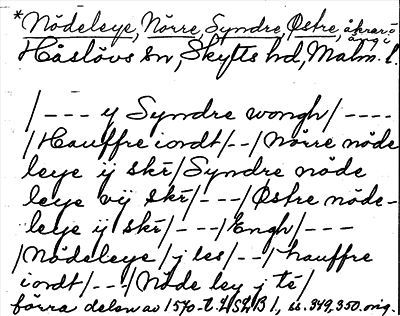 *Nödeleye, Nörre, Syndre, Østre, åkrar i äng i
Håslövs sn, Skytts hd, Malm. l.
/--- y Syndre wongh/----
/Hauffre iordt/--/Nörre nöde
leye ij skr/Syndre nöde
leye vij skr/---/Østre nöde-
leye ij skr/---/Engh/---
/Nödeleye/j les/--/hauffre
iordt/---/Nöde ley j té/
förra delen av 1570-t. LSLB 1, ss. 349, 350. orig.